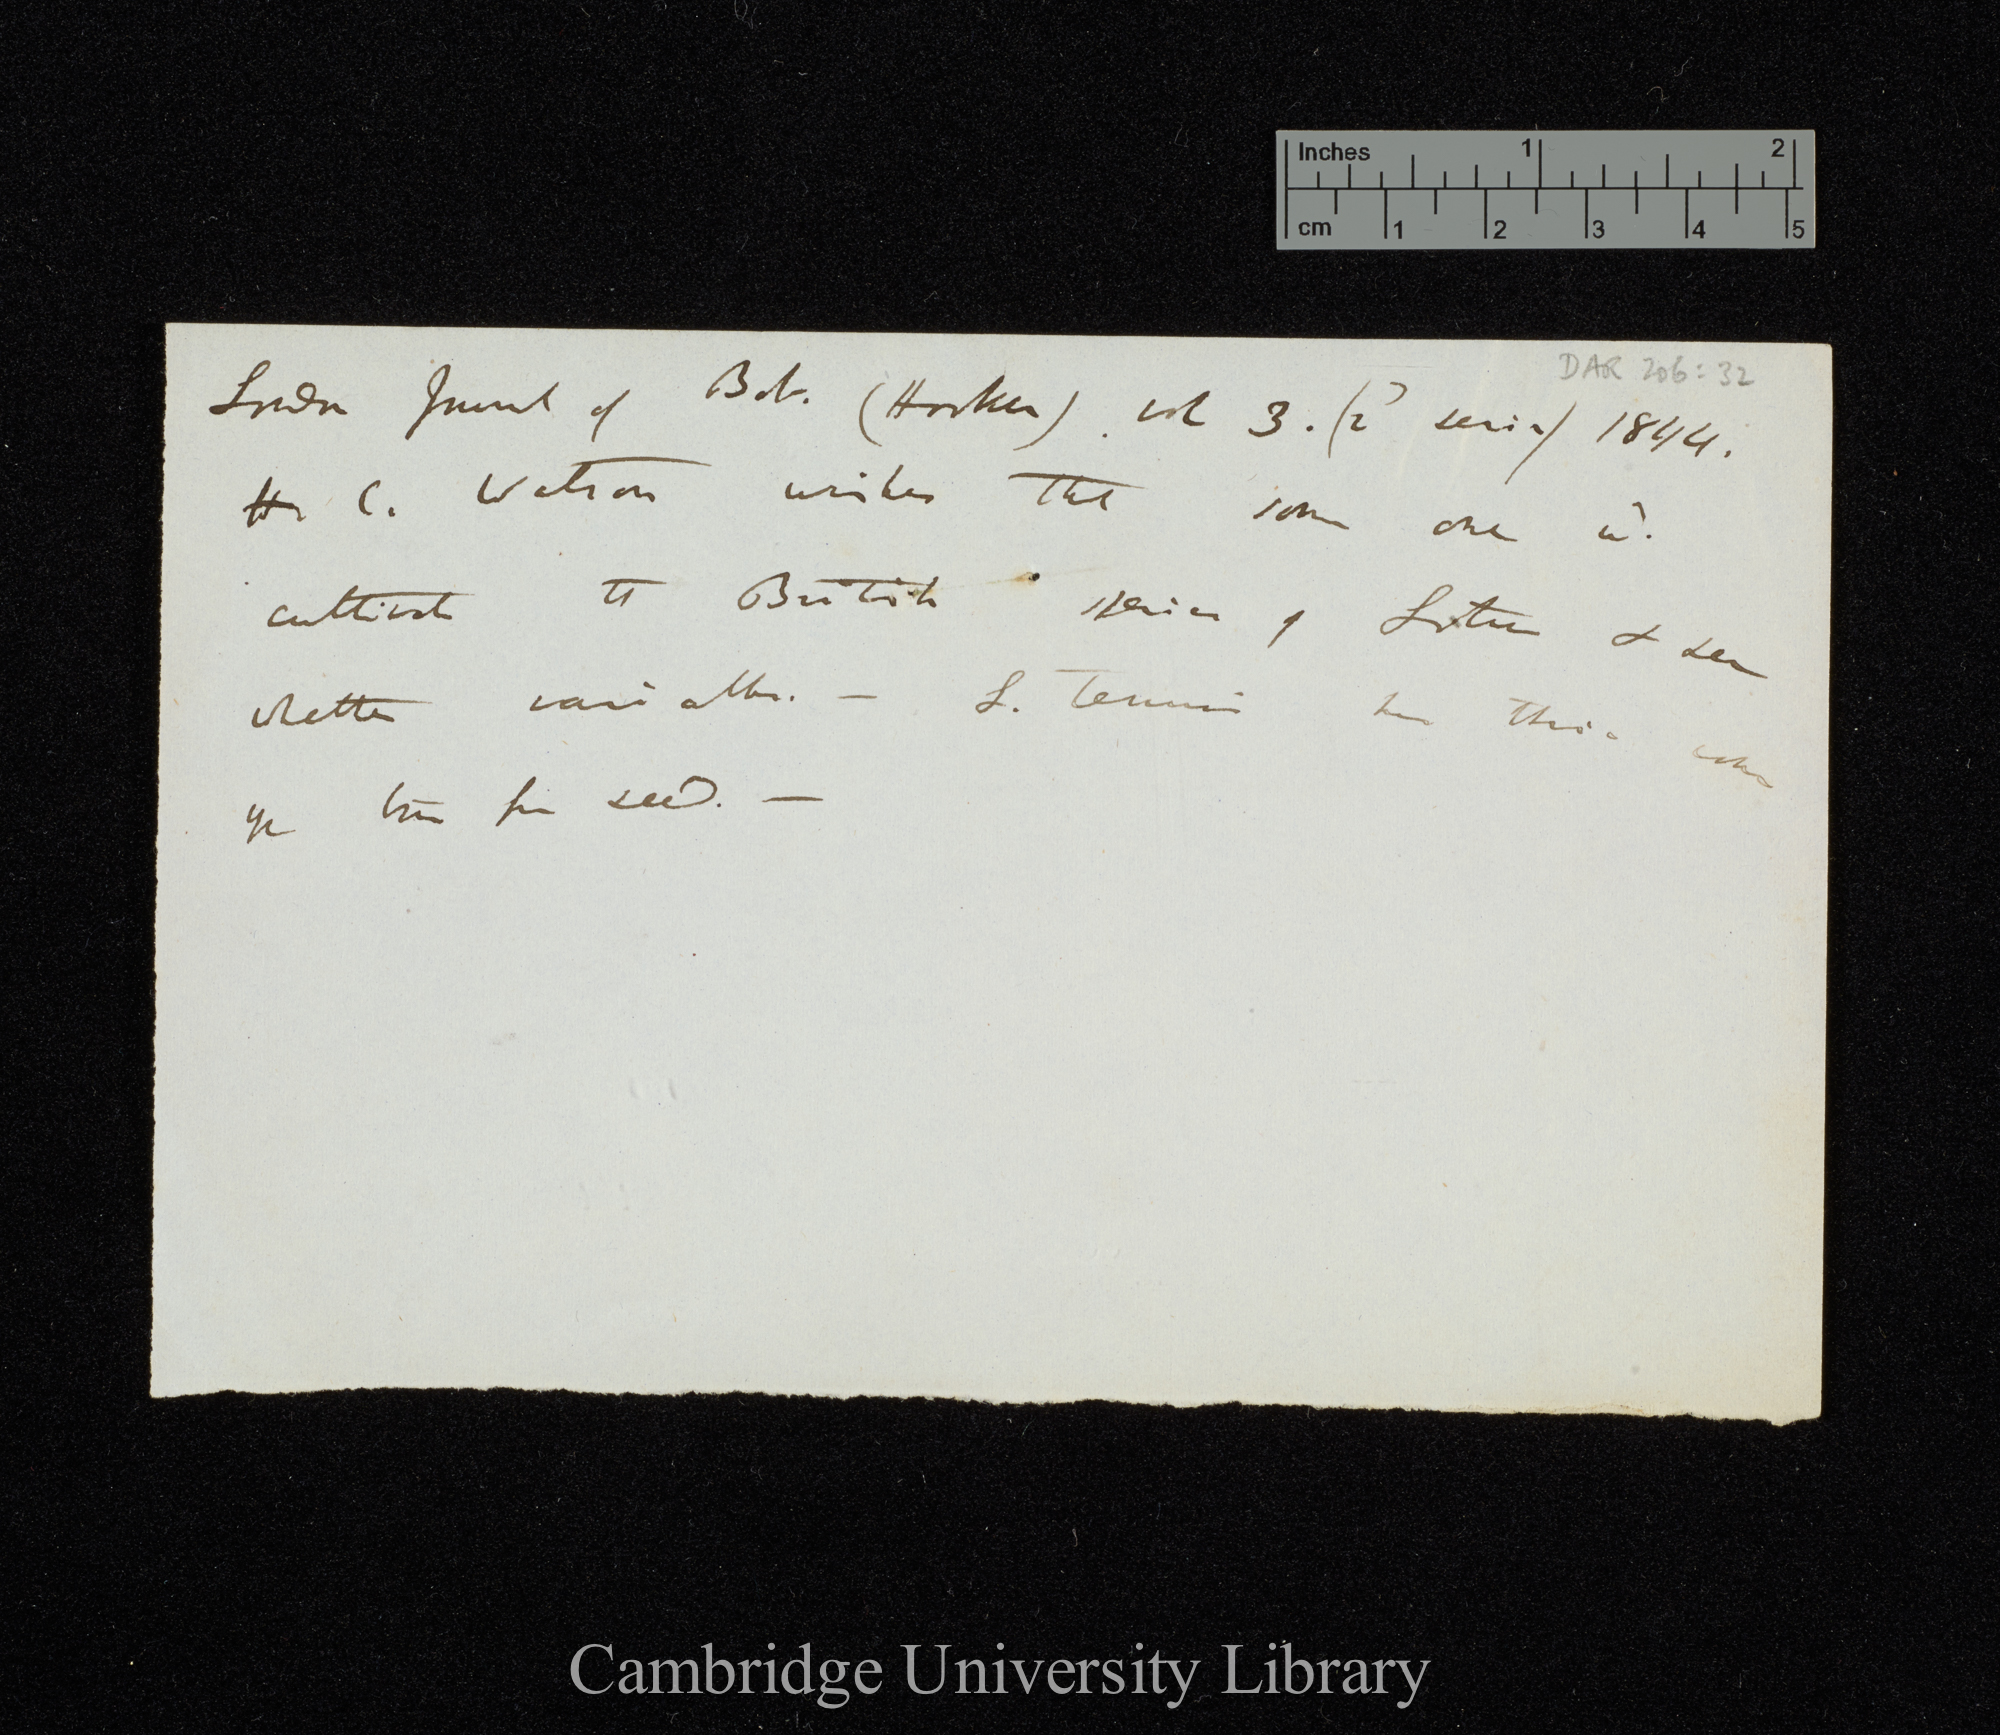 Inches 1 2
cm 1 2 3 4 5
DAR 206:32
London Journal of Bot. (Hooker). vol 3. (2d series) 1844.
H. C. Watson wishes that some one wd.
cultivate the British species of Lotus & see
whether variable. — L. tenuis
for seed. —
Cambridge University Library